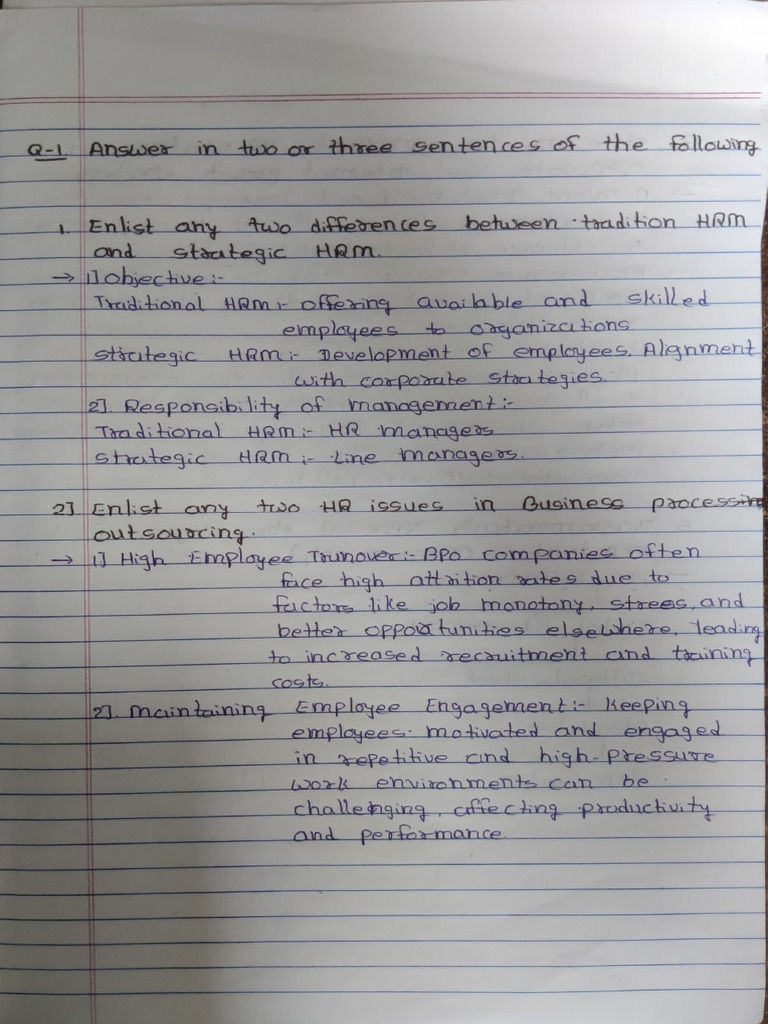 Q-1 Answer in two or three sentences of the following
1. Enlist any two differences between tradition HRM
and strategic HRM.
→ 1] objective :-
Traditional HRM :- offering available and skilled
employees to organizations.
strategic HRM :- Development of employees. Alignment
with corporate strategies.
2]. Responsibility of management :-
Traditional HRM :- HR managers
strategic HRM :- Line managers.
2] Enlist any two HR issues in Business processing
outsourcing.
→ 1] High Employee Trunover :- BPO companies often
face high attrition rates due to
factors like job monotony, strees, and
better opportunities elsewhere, leading
to increased recruitment and training
costs.
2]. maintaining Employee Engagement :- keeping
employees motivated and engaged
in repetitive and high-pressure
work environments can be
challenging, affecting productivity
and performance.